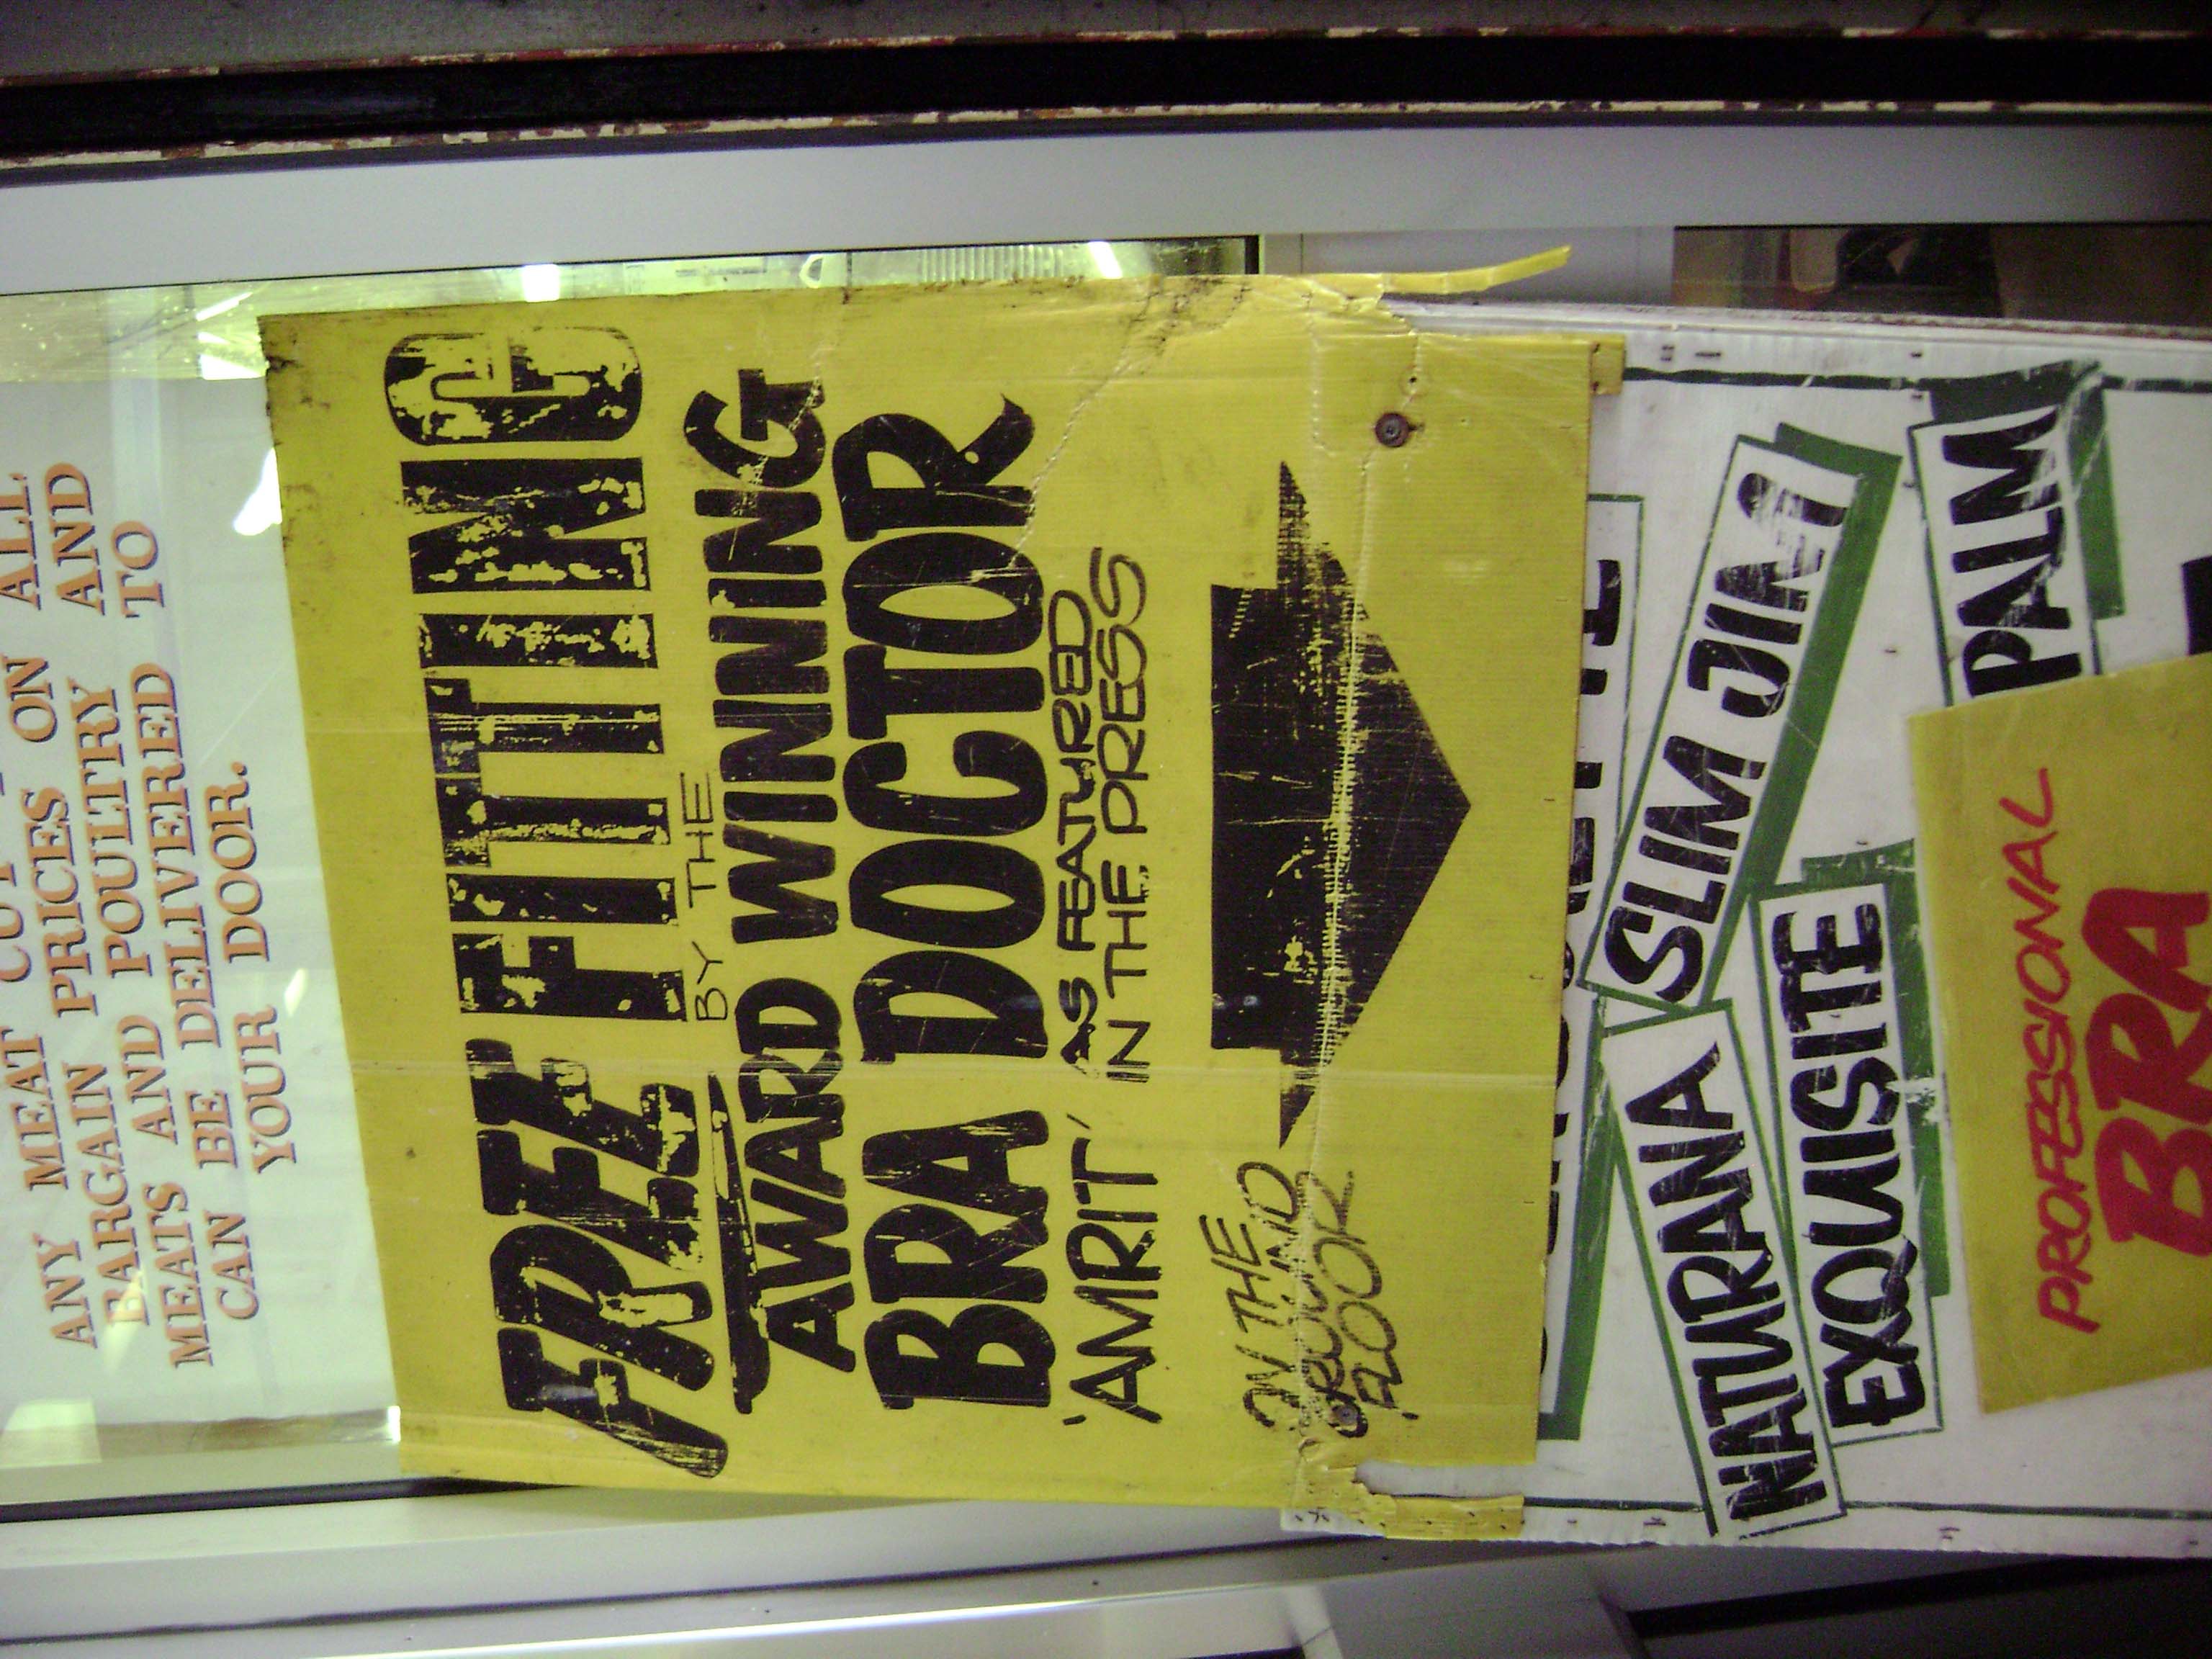 ANY MEAT CUT
BARGAIN PRICES ON ALL
MEATS AND POULTRY AND
CAN BE DELIVERED TO
YOUR DOOR.
FREE FITTING
BY THE
AWARD WINNING
BRA DOCTOR
'AMRIT' AS FEATURED
IN THE PRESS
ON THE
GROUND
FLOOR
SLIM JIM
NATURANA
EXQUISITE
PALM
PROFESSIONAL
BRA